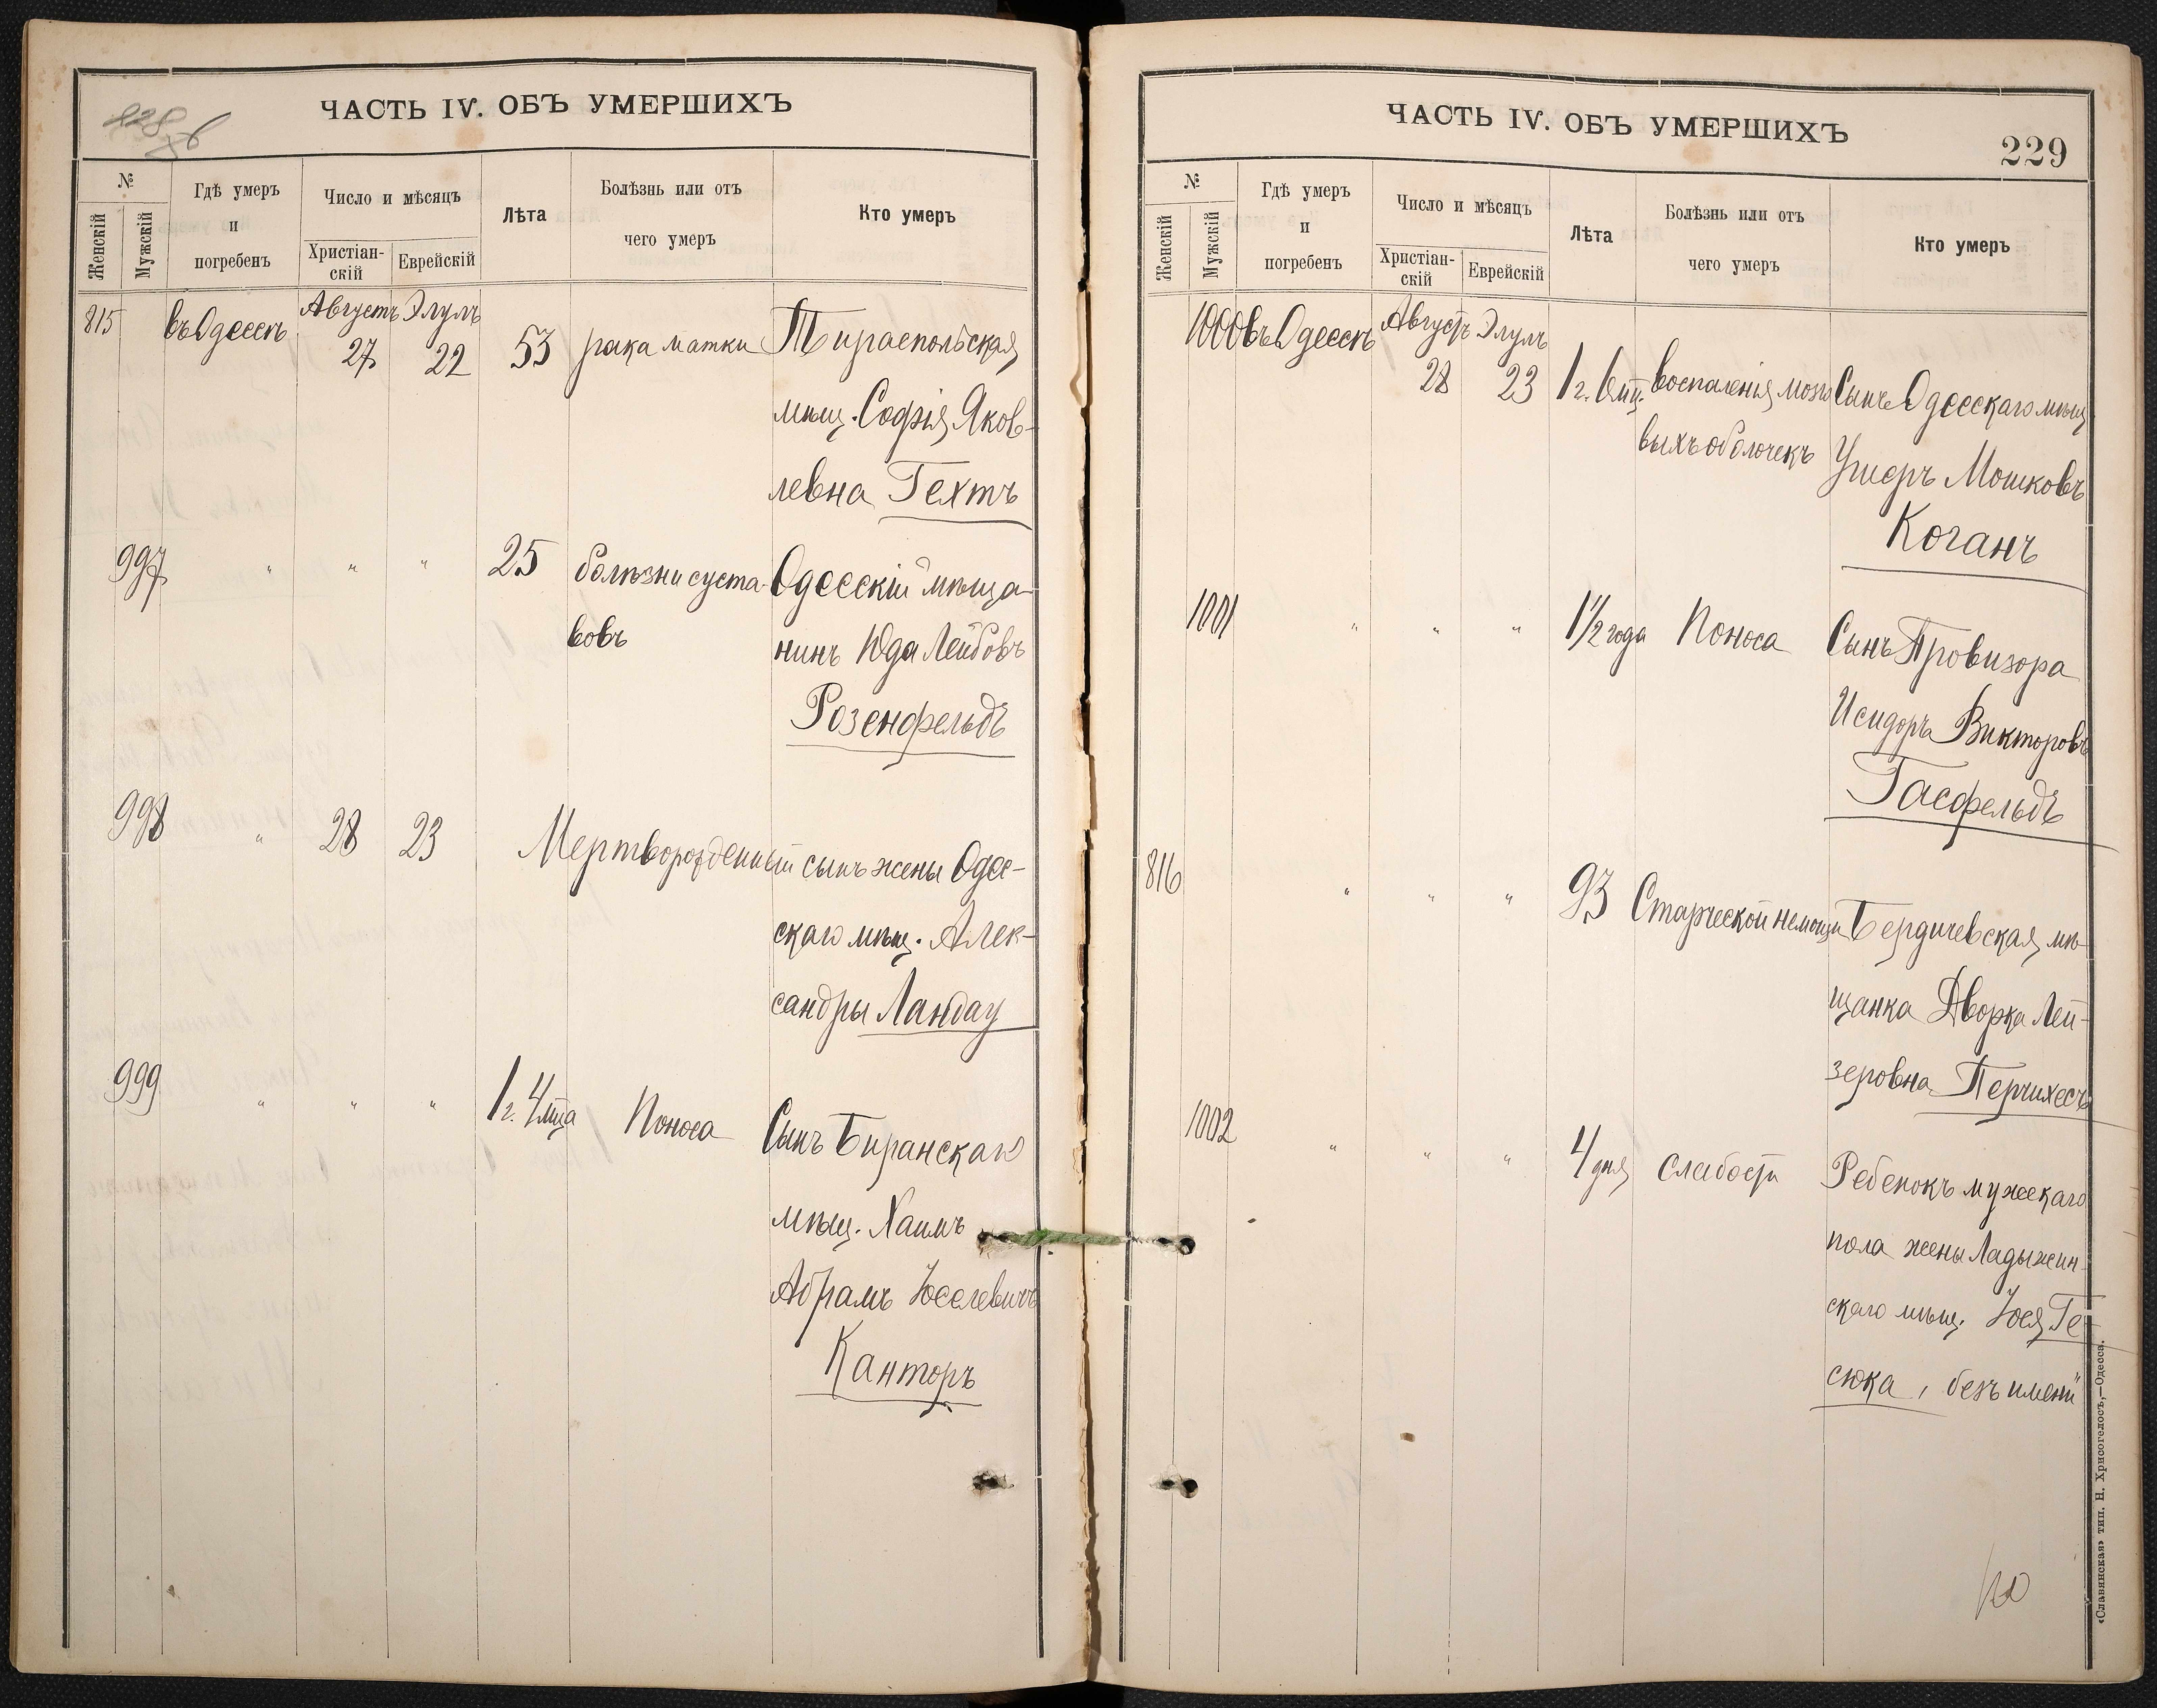 ЧАСТЬ IV. ОБЪ УМЕРШИХЪ
№
Женскій
Мужскій
Гдѣ умеръ
и
погребенъ
Число и мѣсяцъ
Христіан-
скій
Еврейскій
Лѣта
Болѣзнь или отъ
чего умеръ
Кто умеръ
815 въ Одессѣ Августъ Элулъ
27 22 53 рака матки Тираспольская
мѣщ. Софія Яков-
левна Гехтъ
997 " " " 25 болѣзни суста- Одесскій мѣща-
вовъ нинъ Юда Лейбовъ
Розенфельдъ
998 " 28 23 Мертворожденный сынъ жены Одес-
скаго мѣщ. Алек-
сандры Ландау
999 " " " 1 г. 4 мца Поноса Сынъ Биранскаго
мѣщ. Хаимъ
Абрамъ Іоселевичъ
Канторъ
ЧАСТЬ IV. ОБЪ УМЕРШИХЪ
229
№
Женскій
Мужскій
Гдѣ умеръ
и
погребенъ
Число и мѣсяцъ
Христіан-
скій
Еврейскій
Лѣта
Болѣзнь или отъ
чего умеръ
Кто умеръ
1000 въ Одессѣ Августъ Элулъ
28 23 1 г. 6 мц. воспаленія мозго Сынъ Одесскаго мѣщ.
выхъ оболочекъ Ушеръ Мошковъ
Коганъ
1001 " " " 1 1/2 года Поноса Сынъ Провизора
Исидоръ Викторовъ
Гасфельдъ
816 " " " 93 Старческой немощи Бердичевская мѣ-
щанка Дворка Лей-
зеровна Перчихесъ
1002 " " " 4 дня слабости Ребенокъ мужскаго
пола жены Ладыжин-
скаго мѣщ. Іося Ге-
сюка, безъ имени
«Славянская» тип. Н. Хрисогелосъ,—Одесса.